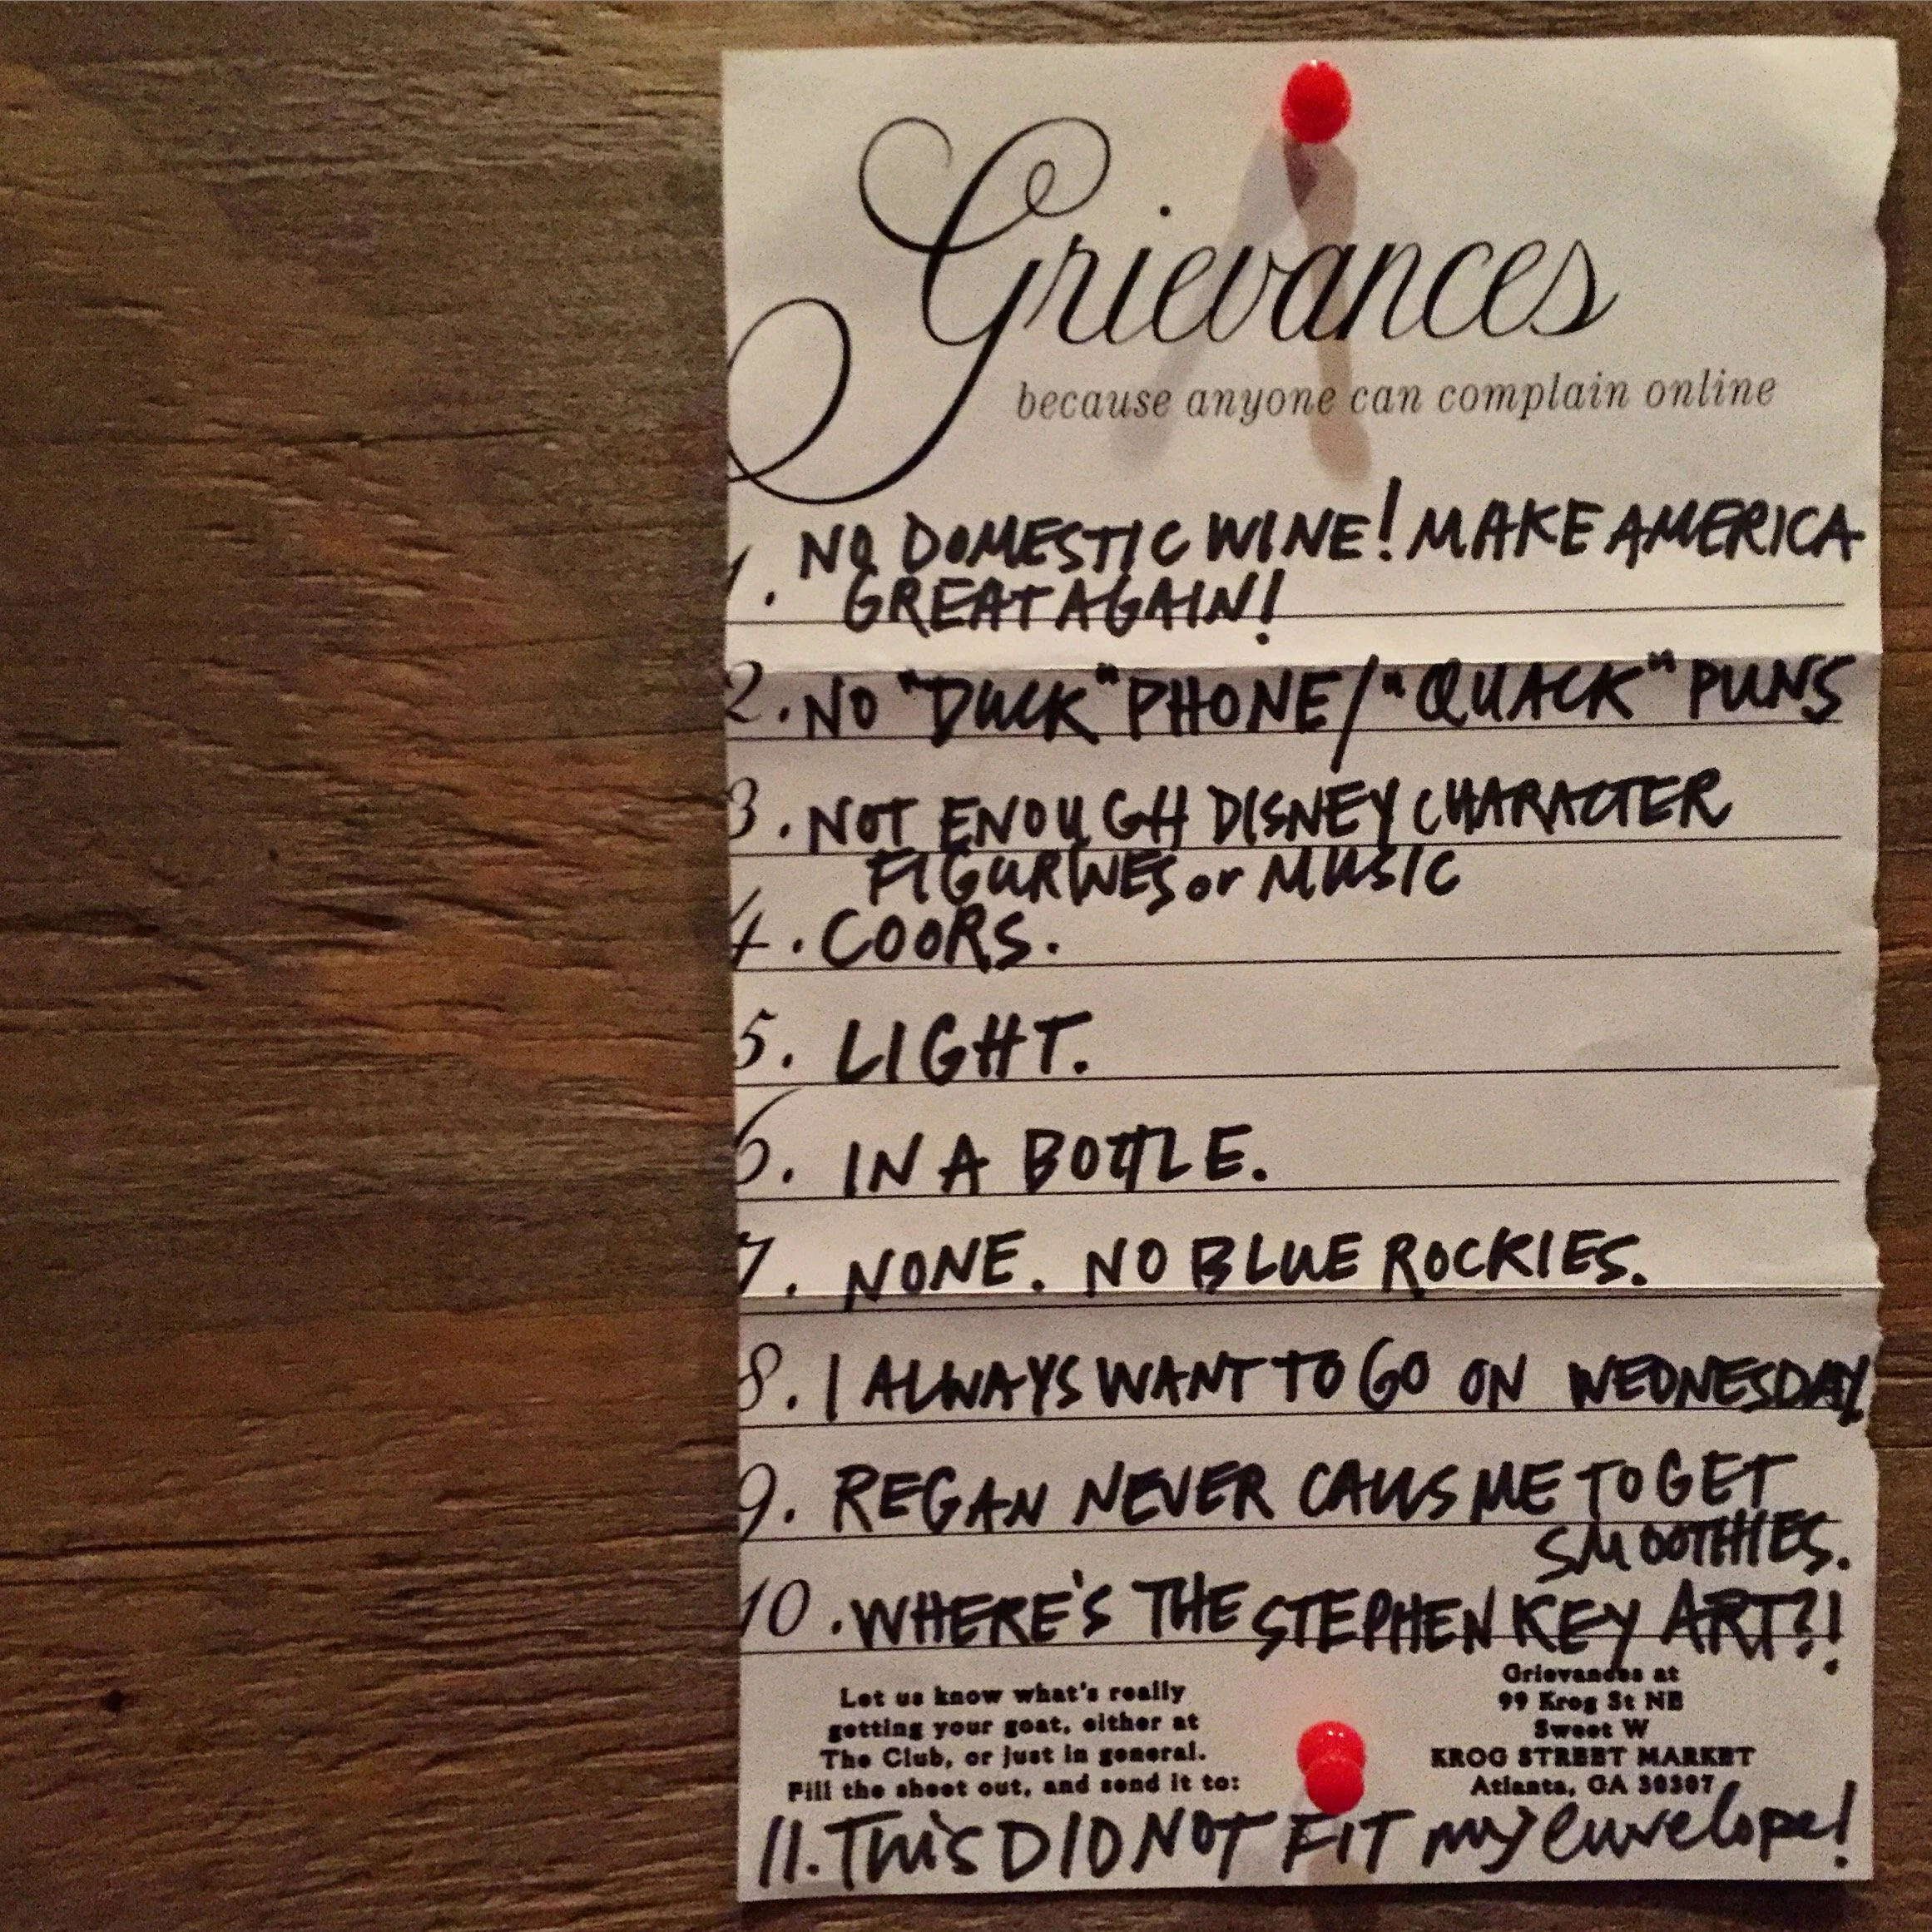 Grievances
because anyone can complain online
1. NO DOMESTIC WINE! MAKE AMERICA
GREAT AGAIN!
2. NO "DUCK" PHONE/"QUACK" PUNS
3. NOT ENOUGH DISNEY CHARACTER
FIGURINES or MUSIC
4. COORS.
5. LIGHT.
6. IN A BOTTLE.
7. NONE. NO BLUE ROCKIES.
8. I ALWAYS WANT TO GO ON WEDNESDAY
9. REGAN NEVER CALLS ME TO GET
SMOOTHIES.
10. WHERE'S THE STEPHEN KEY ART?!
Let us know what's really
getting your goat, either at
The Club, or just in general.
Fill the sheet out, and send it to:
Grievances at
99 Krog St NE
Sweet W
KROG STREET MARKET
Atlanta, GA 30307
11. THiS DID NOT FIT my envelope!